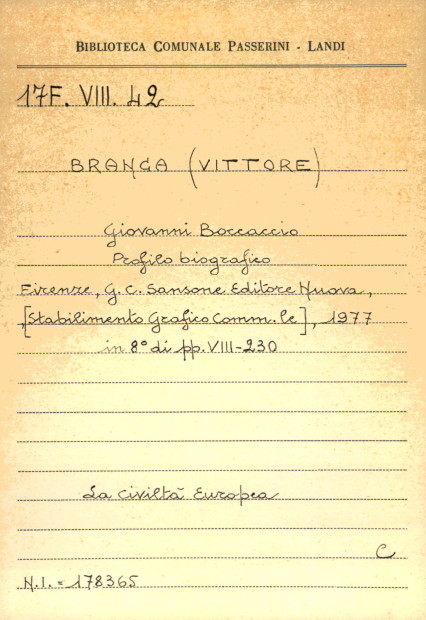 BIBLIOTECA COMUNALE PASSERINI - LANDI
17F. VIII. 42
BRANCA (VITTORE)
Giovanni Boccaccio
Profilo biografico
Firenze, G.C. Sansone Editore Nuova,
,[Stabilimento Grafico Comm.le], 1977
in 8° di pp. VIII-230
La civiltà Europea
C
N.I. = 178365